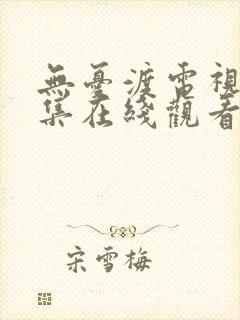 無憂渡電視
集在綫觀看
宋雪梅